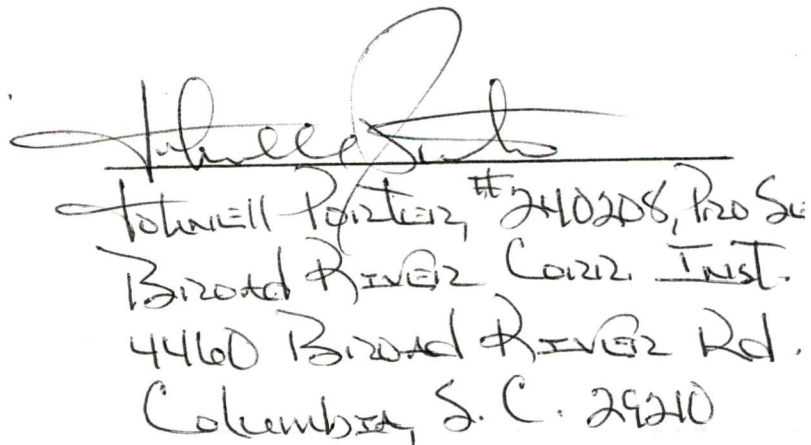 Johnell Porter
JohnEll Porter, #240208, Pro Se
Broad River Corr. Inst.
4460 Broad River Rd.
Columbia, S.C. 29210